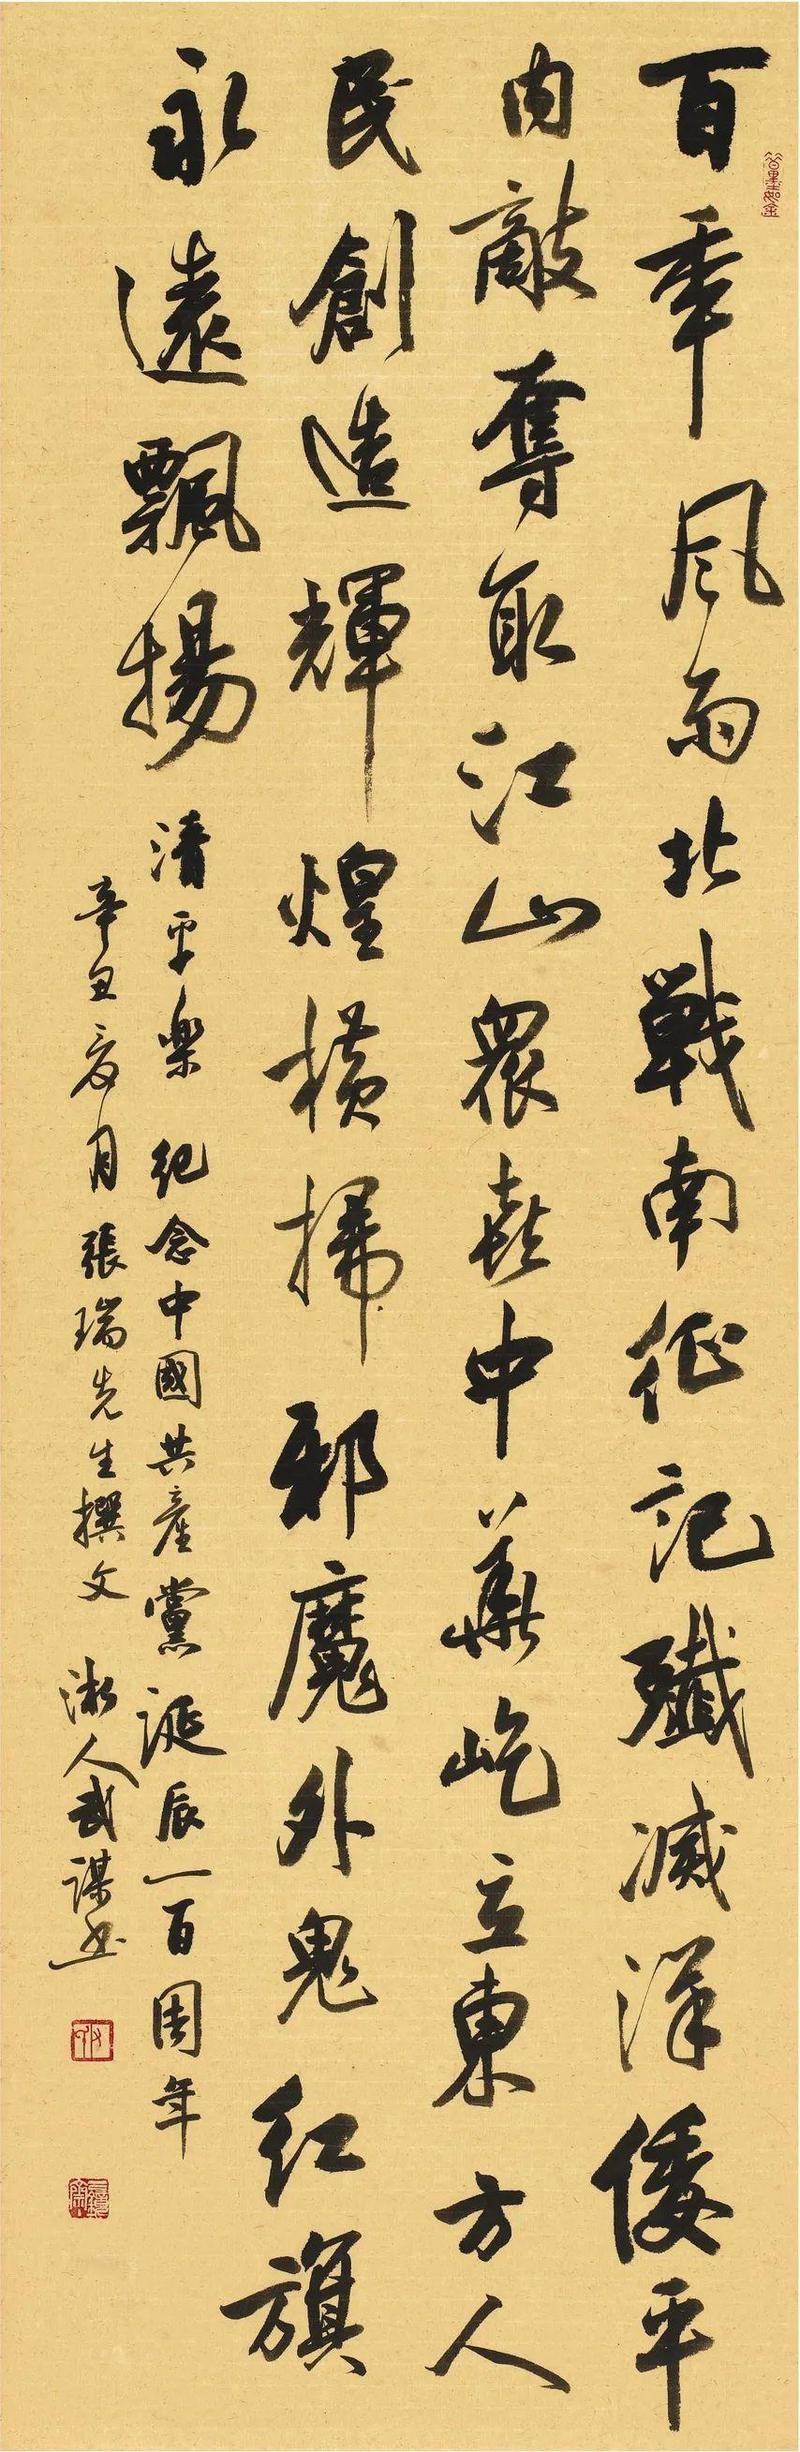 百年風雨北戰南征記殲滅洋倭平
内敵奪取江山眾喜中華屹立東方人
民創造輝煌橫掃邪魔外鬼紅旗
永遠飄揚
清平樂 紀念中國共產黨誕辰一百周年
辛丑夏月張瑞先生撰文 淑人武謀书